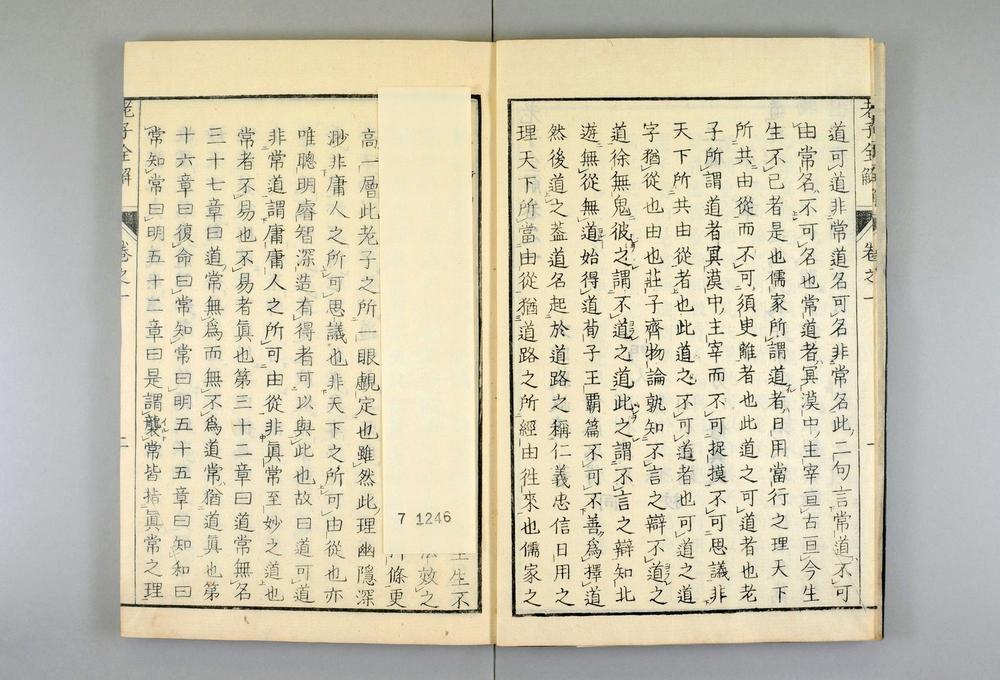 老子全解
卷之一
一
道可道非常道名可名非常名此二句言常道不可
由常名不可名也常道者冥漠中主宰亘古亘今生
生不已者是也儒家所謂道者日用當行之理天下
所共由從而不可須臾離者也此道之可道者也老
子所謂道者冥漠中主宰而不可捉摸不可思議非
天下所共由從者也此道之不可道者也可道之道
字猶從也由也莊子齊物論孰知不言之辯不道之
道徐無鬼彼之謂不道之道此之謂不言之辯知北
遊無從無道始得道荀子王霸篇不可不善爲擇道
然後道之蓋道名起於道路之稱仁義忠信日用之
理天下所當由從猶道路之所經由徃來也儒家之
生不
效之
條更
7 1246
高一層此老子之所一眼覷定也雖然此理幽隱深
渺非庸人之所可思議也非天下之所可由從也亦
唯聰明睿智深造有得者可以與此也故曰道可道
非常道謂庸庸人之所可由從非眞常至妙之道也
常者不易也不易者眞也第三十二章曰道常無名
三十七章曰道常無爲而無不爲道常猶道眞也第
十六章曰復命曰常知常曰明五十五章曰知和曰
常知常曰明五十二章曰是謂襲常皆指眞常之理
老子全解
卷之一
二